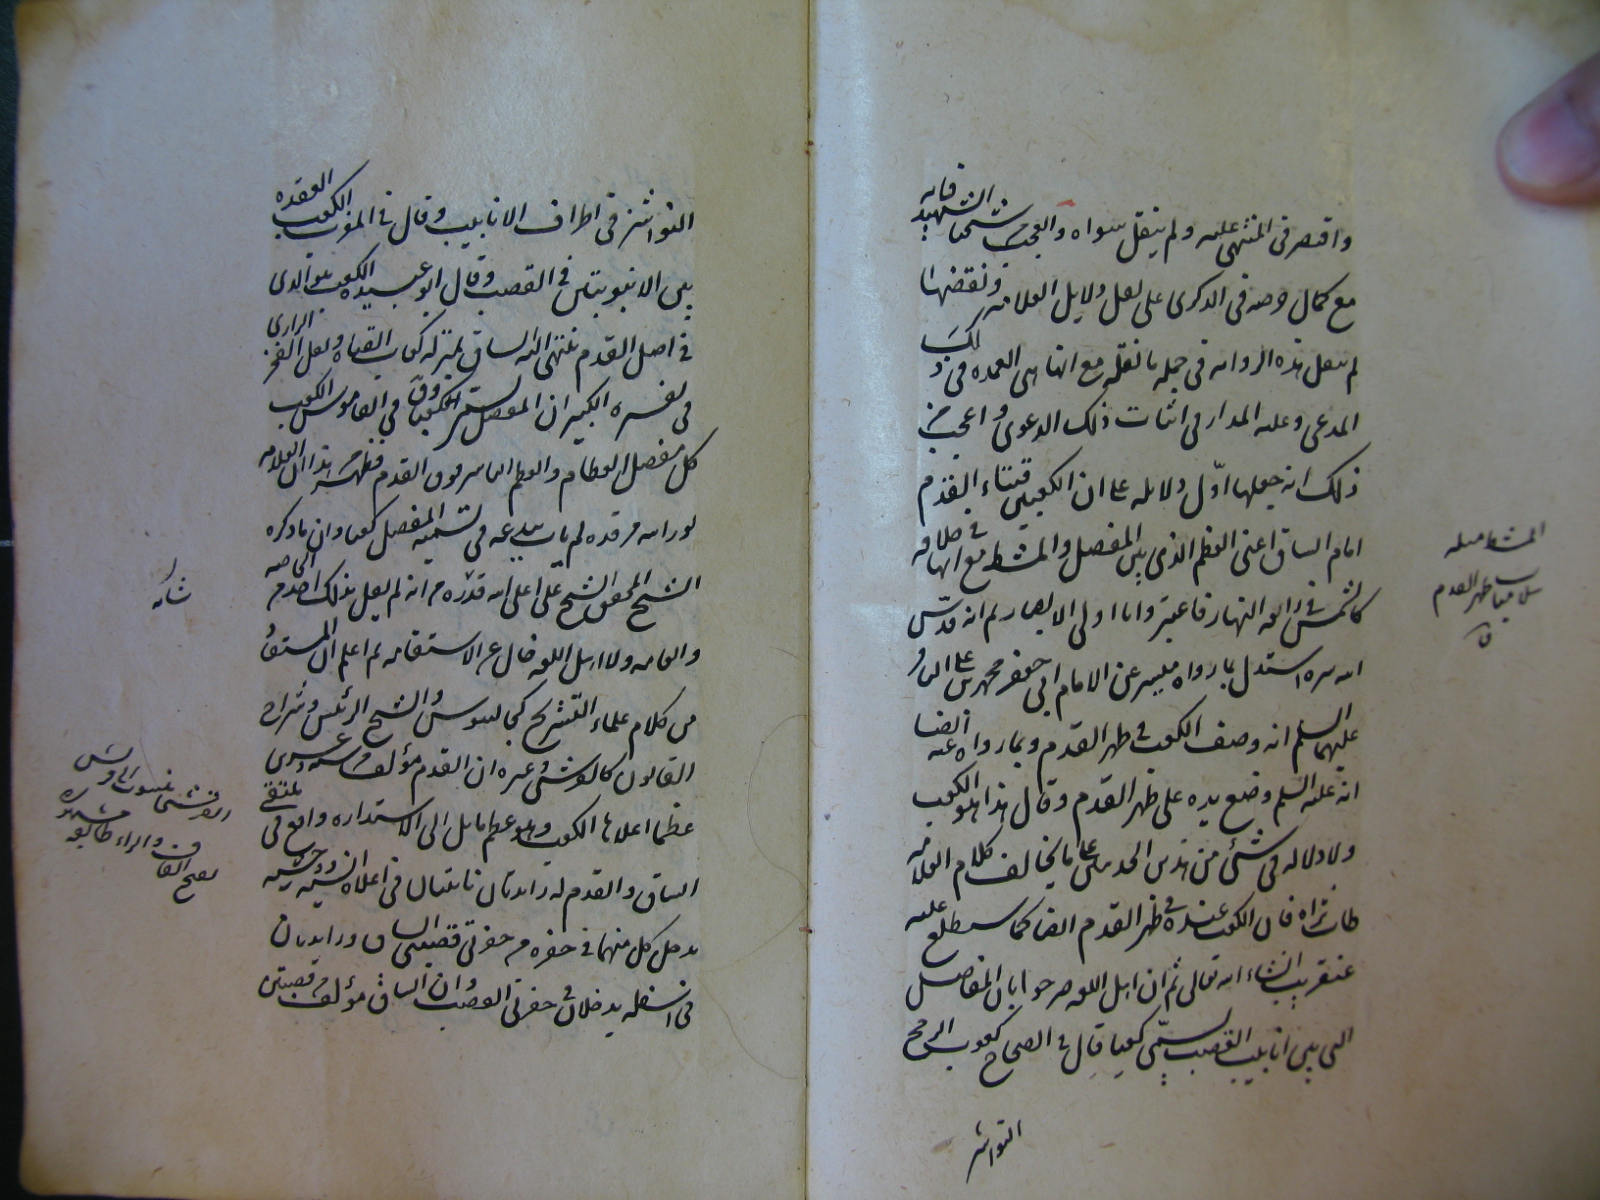 واقتصر فى المنتهى عليه ولم ينقل سواه والعجب من شيخنا الشهيد فانه
مع كمال حرصه فى الذكرى على نقل دلايل العلامه ونقضها
لم ينقل هذه الروايه فى جمله ما نقله مع انها هى العمده فى ذلك
المدعى وعليه المدار فى اثبات ذلك الدعوى واعجب من
ذلك انه جعلها اوّل دلايله على ان الكعبين قبتا القدم
امام الساق اعنى العظم الذى بين المفصل والمشط مع انها فى خلافه
كالشمس فى رابعه النهار فاعتبروا يا اولى الابصار ثم انه قدّس
الله سره استدل بما رواه ميسر عن الامام ابى جعفر محمد بن على الباقر
عليهما السلم انه وصف الكعب فى ظهر القدم وبما رواه عنه ايضا
انه عليه السلم وضع يده على ظهر القدم وقال هذا هو الكعب
ولا دلاله فى شئ من هذين الحديثين على ما يخالف كلام العلامه
طاب ثراه فان الكعب عنده فى ظهر القدم ايضا كما ستطلع عليه
عنقريب انشاء الله تعالى ثم ان اهل اللغه صرحوا بان المفاصل
التى بين انابيب القصب تسمّى كعبا قال فى الصحاح كعوب الرمح
النواشز
المشط ميله
سلاميات ظهر القدم
ق
النواشز فى اطراف الانابيب وقال فى المغرب الكعب العقده
بين الانبوبتين فى القصب وقال ابو عبيده الكعب هو الذى
فى اصل القدم ينتهى اليه الساق بمنزله كعاب القناه ونقل الفخر الرازى
فى تفسيره الكبير ان المفصل يسمى كعبا وفى القاموس الكعب
كل مفصل للعظام والعظم الناشر فوق القدم فظهر من هذا ان العلامه
نور الله مرقده لم يات ببدعه فى تسميه المفصل كعبا وان ما ذكره
الشيخ المحقق الشيخ على اعلى الله قدره من انه لم يقل بذلك احد من الخاصه
والعامه ولا اهل اللغه خال عن الاستقامه ثم اعلم ان المستفاد
من كلام علماء التشريح كجالينوس والشيخ الرئيس وشراح
القانون كالقرشى وغيره ان القدم مؤلف من سته وعشرين
عظما اعلاها الكعب وهو عظم مايل الى الاستداره واقع فى ملتقى
الساق والقدم له زايدتان ناتيتان فى اعلاه انسيه ووحشيه
يدخل كل منهما فى حفره من حفرتى قصبتى الساق وزايدتان
فى اسفله يدخلان فى حفرتى العقب وان الساق مؤلف من قصبتين
القرشى منسوب الى قريش
بفتح القاف والراء طائفه